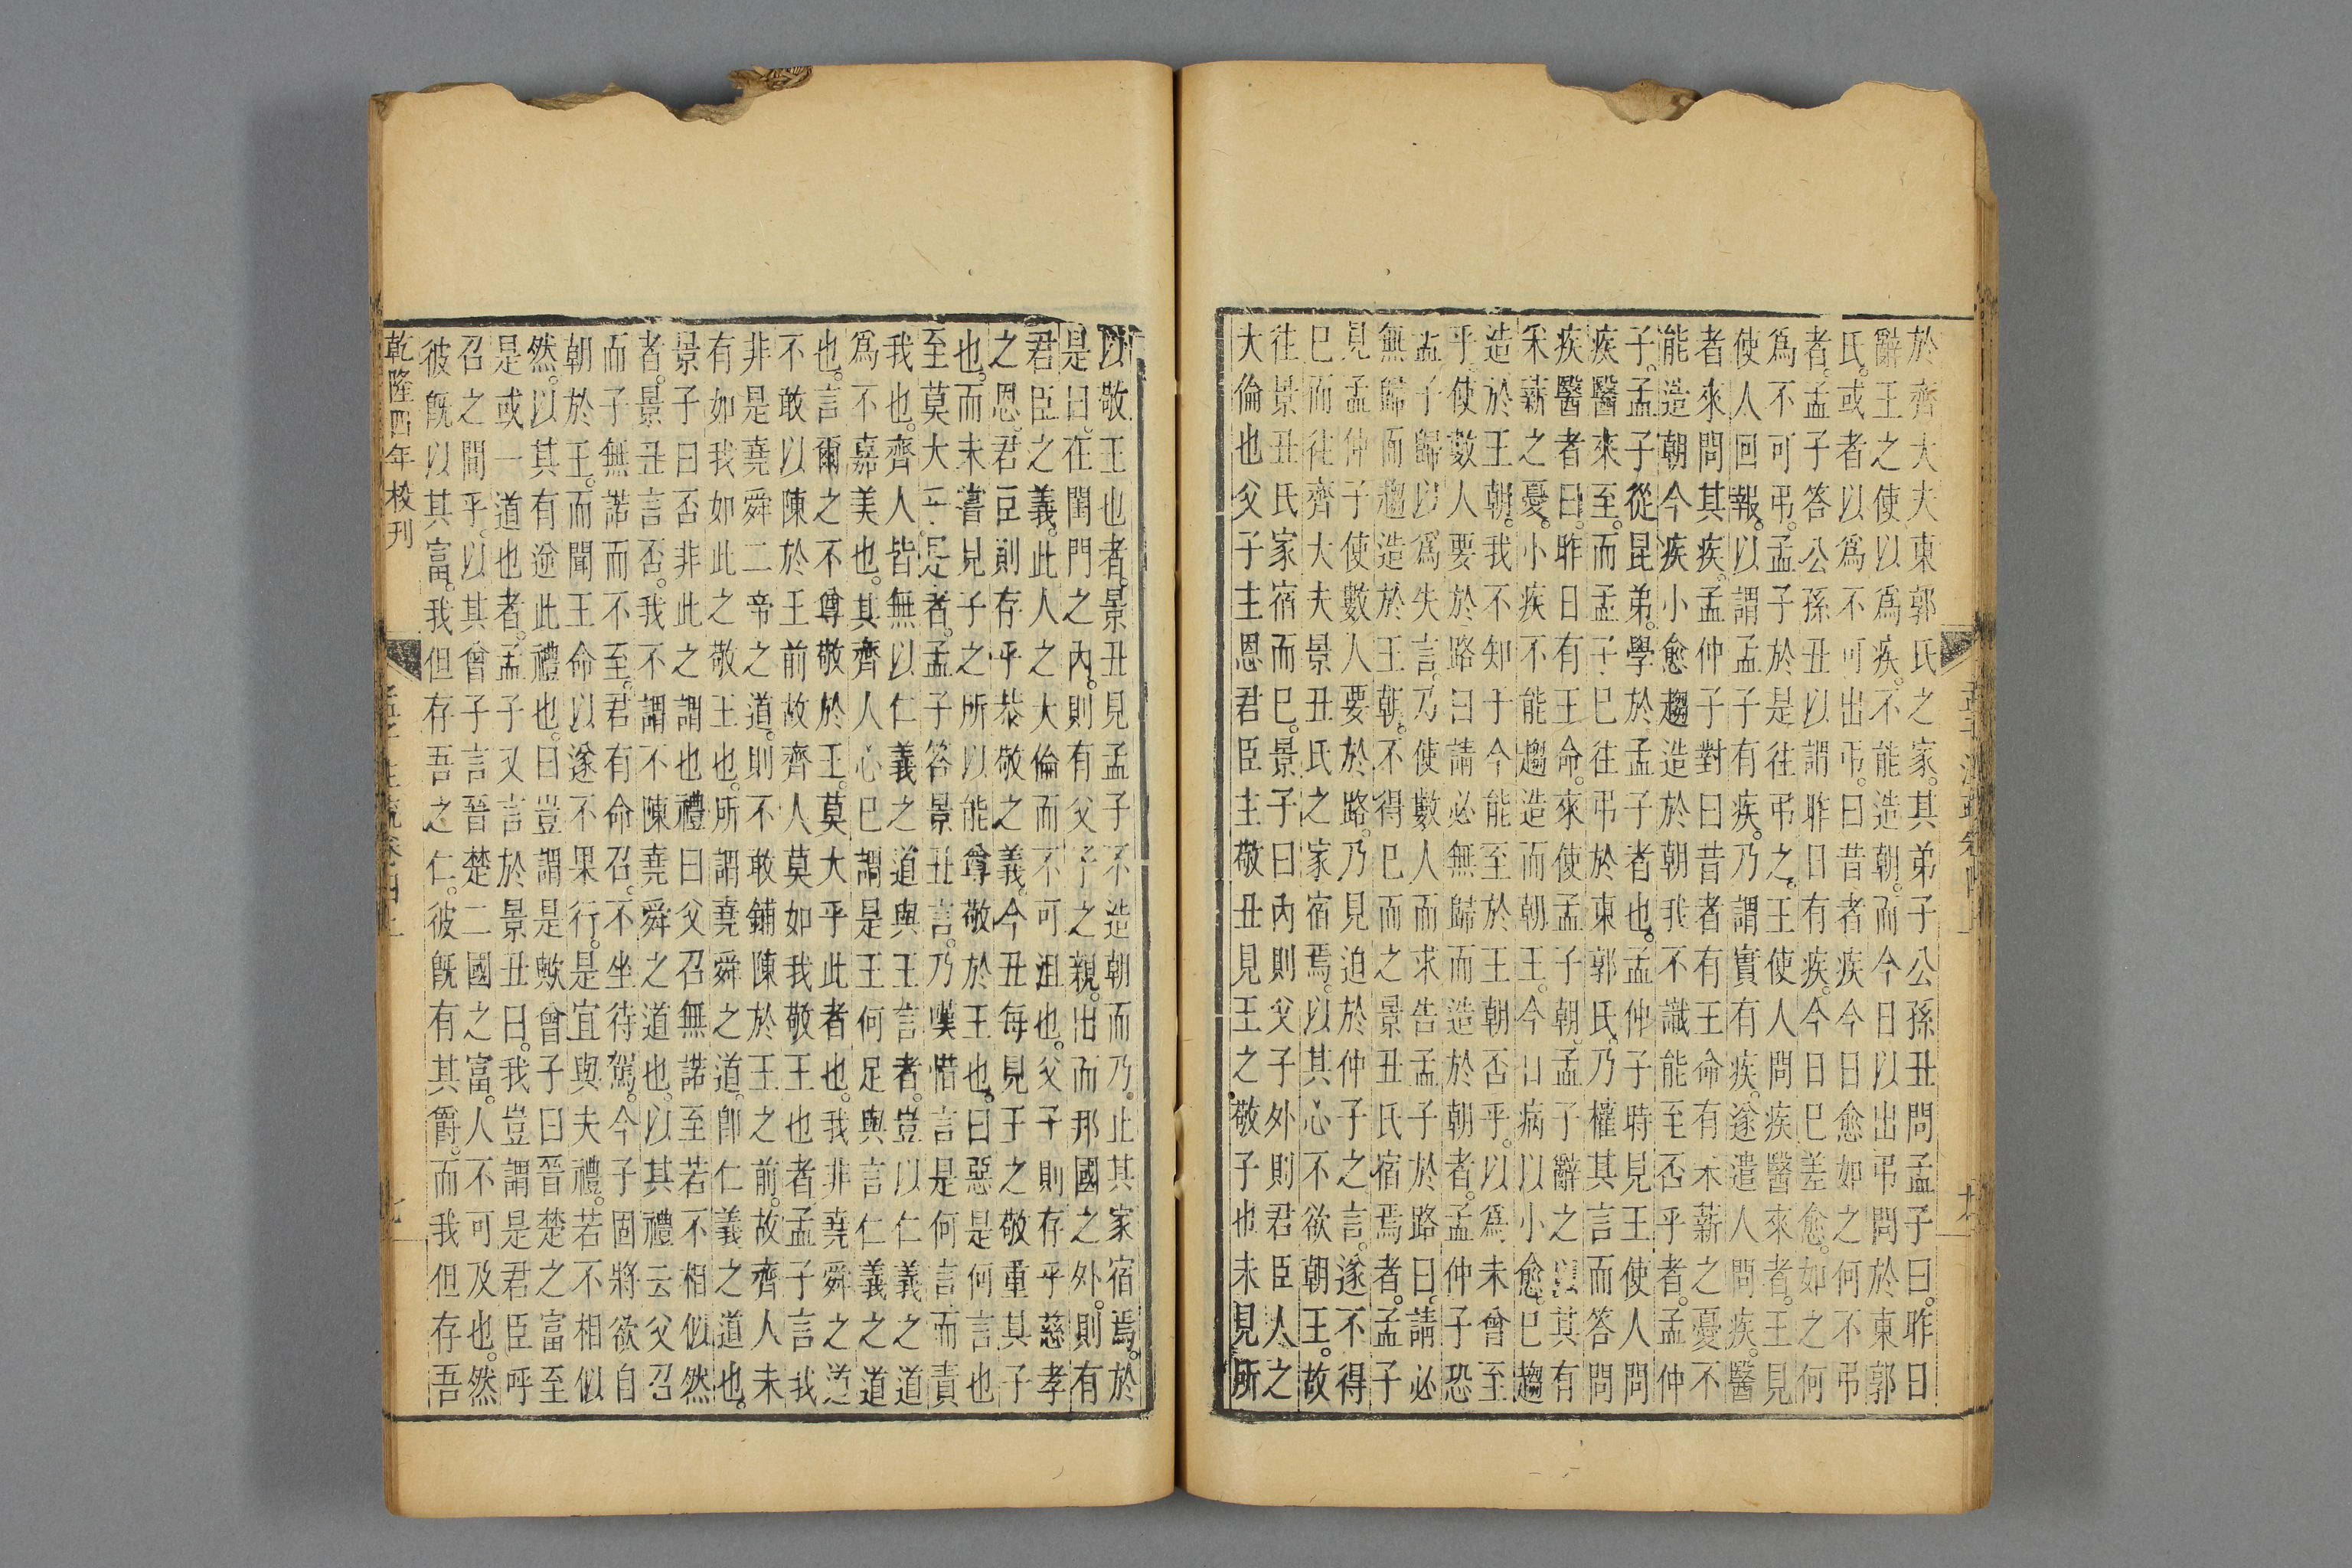 於齊大夫東郭氏之家其弟子公孫丑問孟子曰昨日
辭王之使以為疾不能造朝而今日以出弔問於東郭
氏或者以為不可出弔曰昔者疾今日愈如之何不弔
者孟子答公孫丑以謂昨日有疾今日巳差愈如之何
為不可弔孟子於是往弔之王使人問疾醫來者王見
使人回報以謂孟子有疾乃謂實有疾遂遣人問疾醫
者來問其疾孟仲子對曰昔者有王命有采薪之憂不
能造朝今疾小愈趨造於朝我不識能至否乎者孟仲
子孟子從昆弟學於孟子者也孟仲子時見王使人問
疾醫來至而孟子巳往弔於東郭氏乃權其言而答問
疾醫者曰昨日有王命來使孟子朝孟子辭之以其有
采薪之憂小疾不能趨造而朝王今日病以小愈巳趨
造於王朝我不知于今能至於王朝否乎以為未曾至
乎使數人要於路曰請必無歸而造於朝者孟仲子恐
孟子歸以為失言乃使數人而求告孟子於路曰請必
無歸而趨造於王朝不得巳而之景丑氏宿焉者孟子
見孟仲子使數人要於路乃見迫於仲子之言遂不得
巳而往齊大夫景丑氏之家宿焉以其心不欲朝王故
往景丑氏家宿而巳景子曰內則父子外則君臣人之
大倫也父子主恩君臣主敬丑見王之敬子也未見所
以敬王也者景丑見孟子不造朝而乃止其家宿焉於
是曰在閨門之內則有父子之親出而邦國之外則有
君臣之義此人之大倫而不可沮也父子則存乎慈孝
之恩君臣則存乎恭敬之義今丑每見王之敬重其子
也而未嘗見子之所以能尊敬於王也曰惡是何言也
至莫大乎是者孟子答景丑言乃嘆惜言是何言而責
我也齊人皆無以仁義之道與王言者豈以仁義之道
為不嘉美也其齊人心巳謂是王何足與言仁義之道
也言爾之不尊敬於王莫大乎此者也我非堯舜之道
不敢以陳於王前故齊人莫如我敬王也者孟子言我
非是堯舜二帝之道則不敢鋪陳於王之前故齊人未
有如我如此之敬王也所謂堯舜之道即仁義之道也
景子曰否非此之謂也禮曰父召無諾至若不相似然
者景丑言否我不謂不陳堯舜之道也以其禮云父召
而子無諾而不至君有命召不坐待駕今子固將欲自
朝於王而聞王命以遂不果行是宜與夫禮若不相似
然以其有逆此禮也曰豈謂是歟曾子曰晉楚之富至
是或一道也者孟子又言於景丑曰我豈謂是君臣呼
召之間乎以其曾子言晉楚二國之富人不可及也然
彼既以其富我但存吾之仁彼既有其爵而我但存吾
乾隆四年校刊